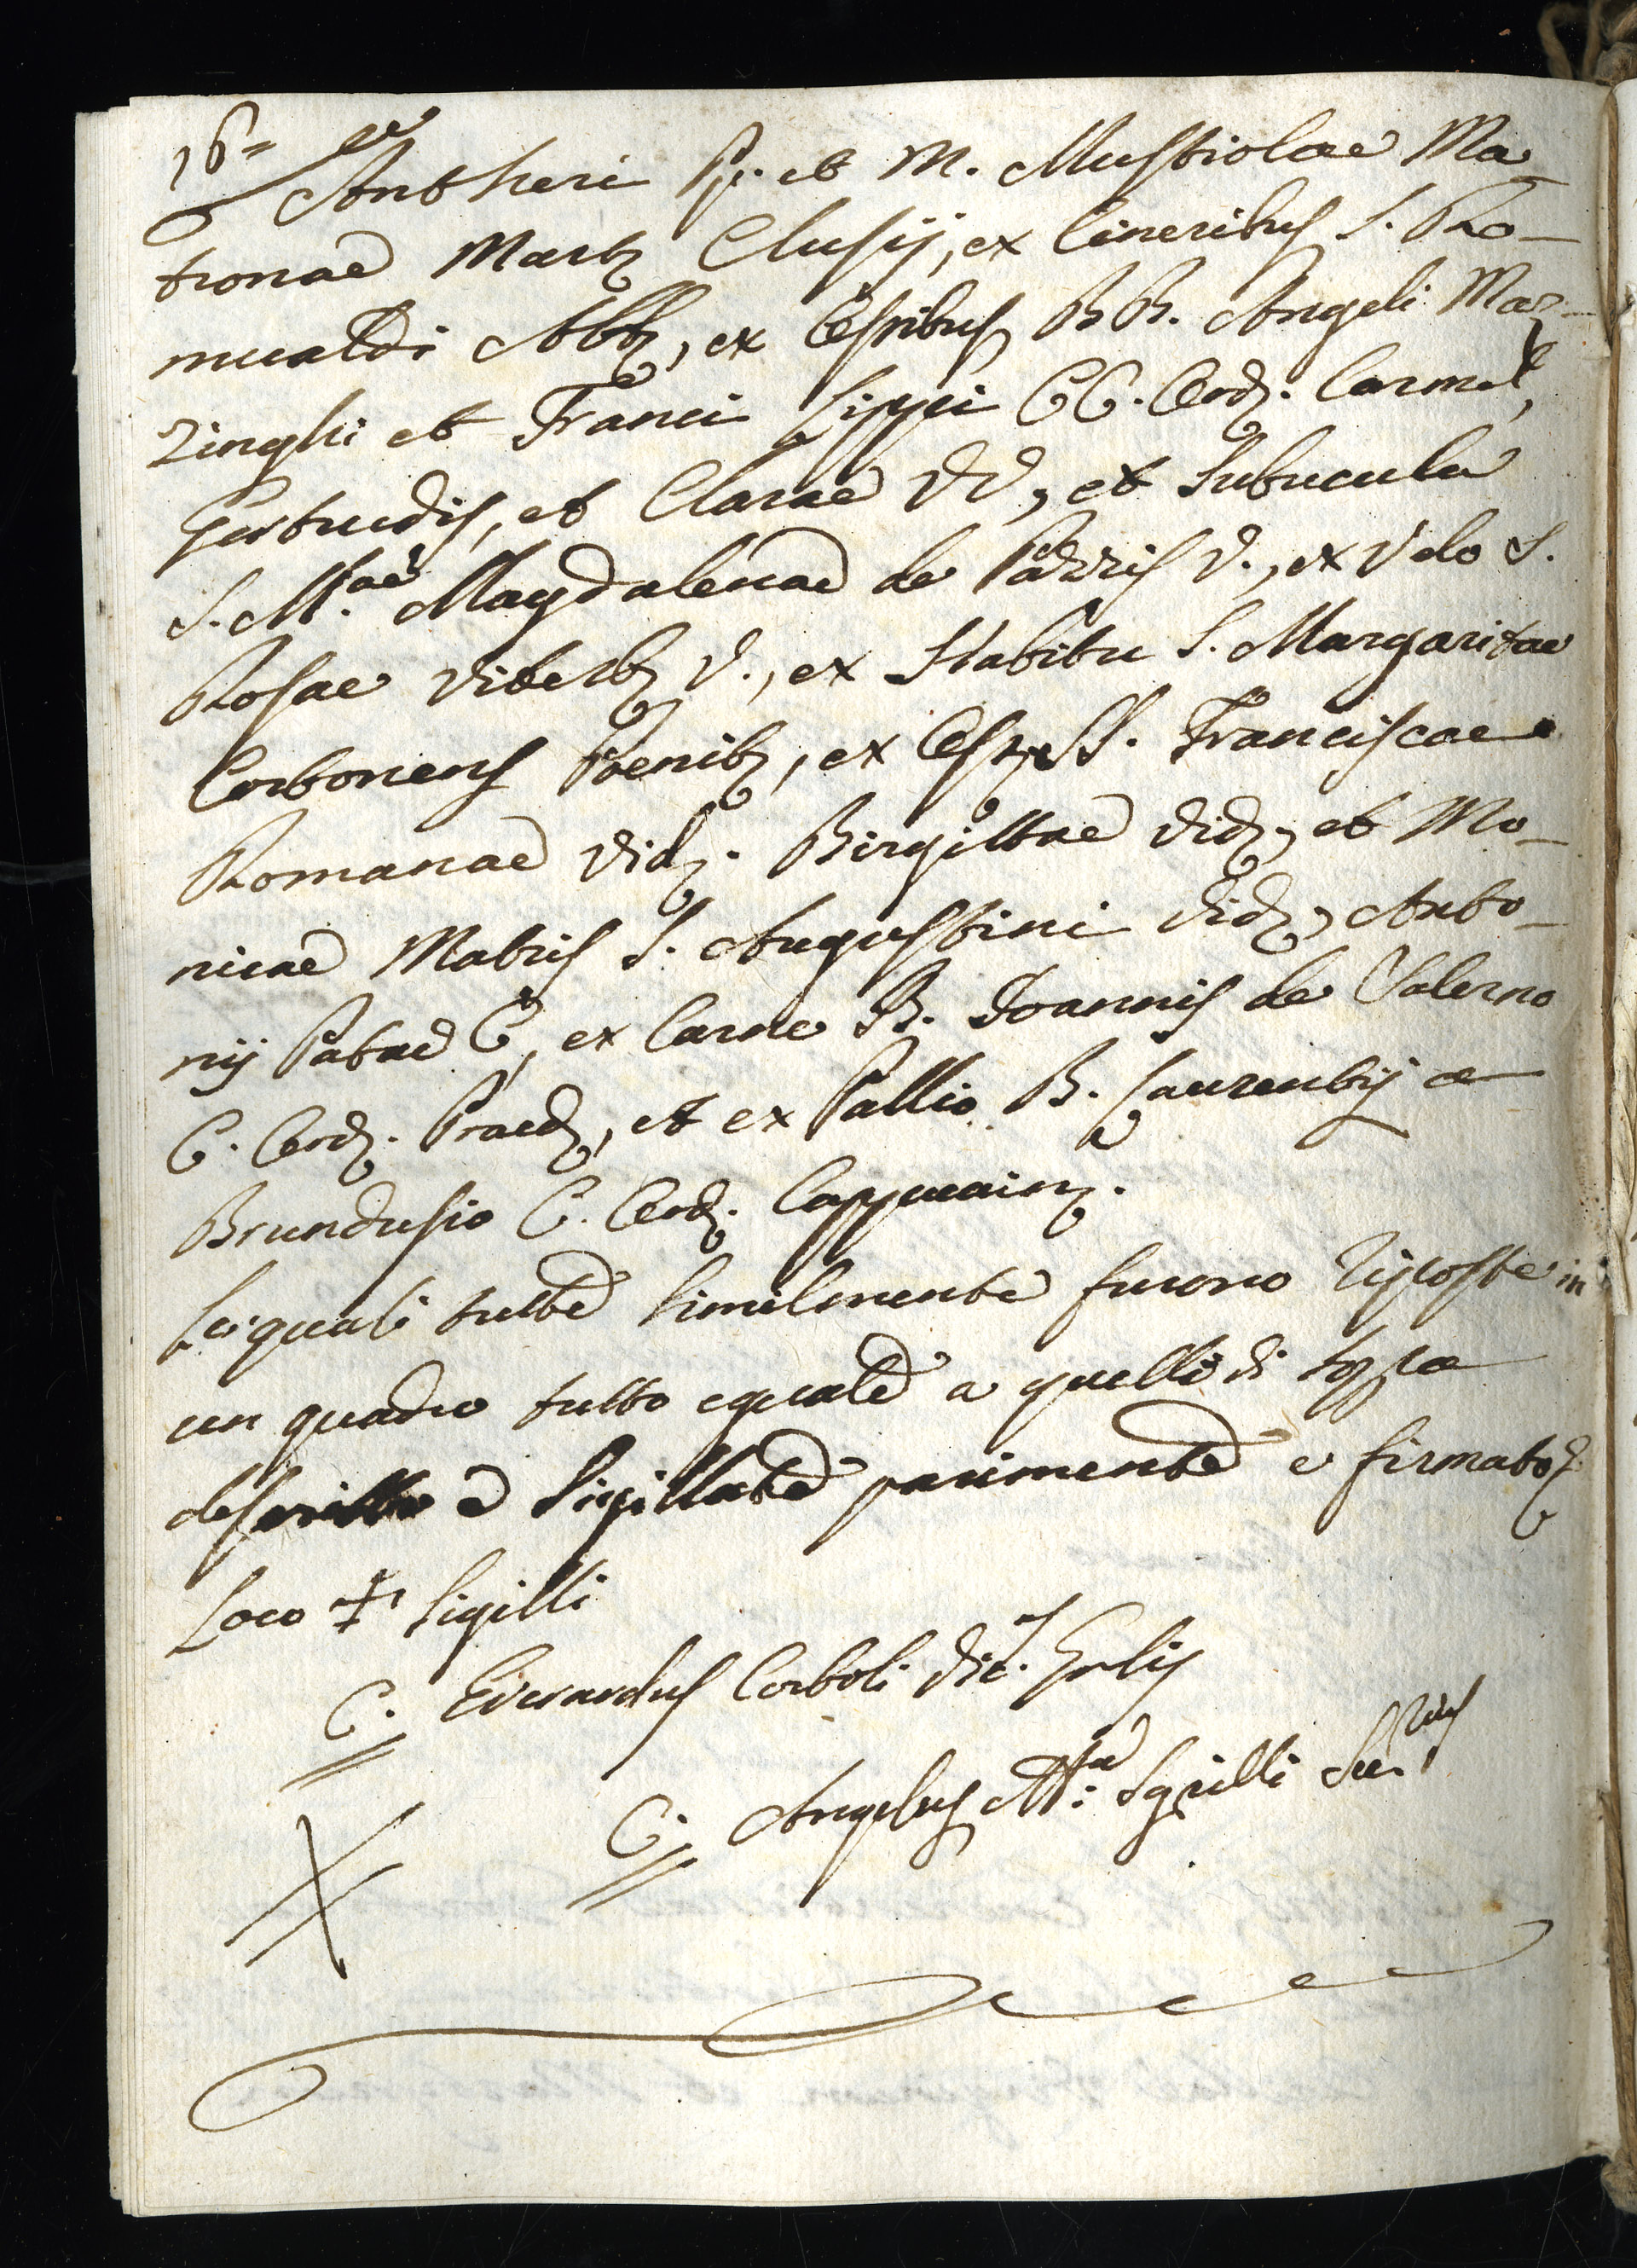 16=
Antheri P. et M. Mustiolae Ma
tronae Mart. Clusij, ex Cineribus S. Ro-
mualdi Abb., ex Ossibus BB. Angeli Maz-
zinghi et Franci Lippi CC. Ord. Carmel,
Gertrudis, et Clarae VV, et Subucula
S. M.ae Magdalenae de Pazzis V., ex Velo S.
Rosae Viterb. V., ex Habitu S. Margaritae
Cortonens Poenit., ex Oss. SS. Franciscae
Romanae Vid. Birgittae Vid. et Mo-
nicae Matris S. Augustini Vid., Anto-
nij Patav C, ex Carne B. Joannis de Salerno
C. Ord. Praed., et ex Pallio B. Laurentij a
Brundusio C. Ord. Cappuccin.
Le quali tutte similmente furono riposte in
un quadro tutto eguale a quelli di sopra
descritto e sigillate parimente e firmato
Loco + Sigilli
C. Everardus Corboli Vic.s Gnlis
C. Angelus M.a Sgrilli